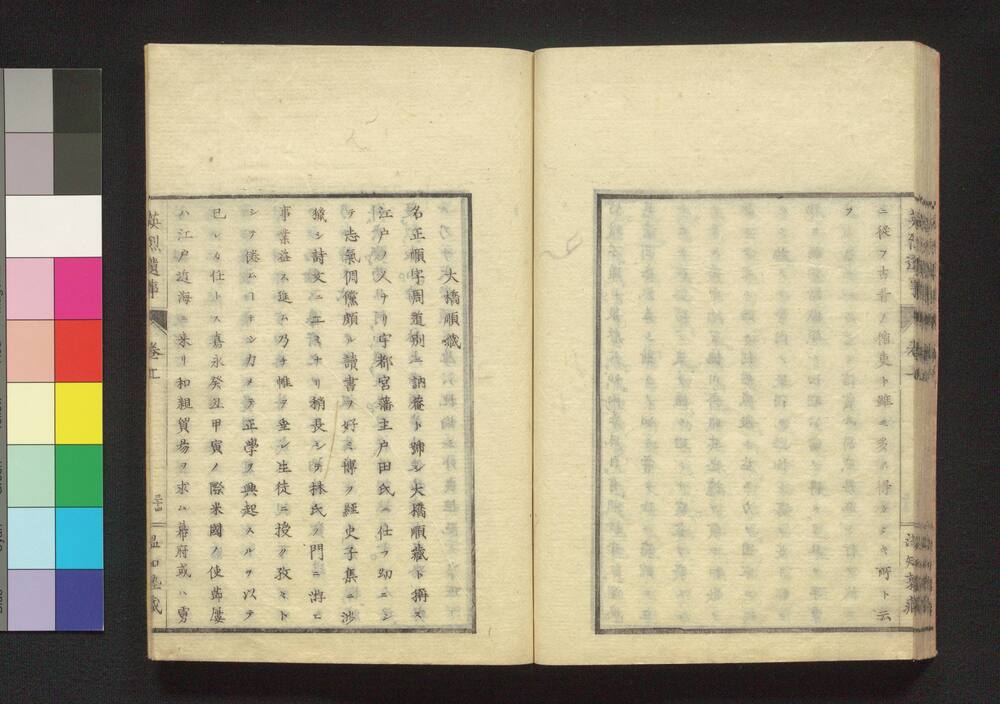 ニ從フ古昔ノ備東ト雖モ多ク得ヘシキ所ト云
フ
大橋順藏
名正順字周道別ニ訥菴ト號シ大橋順藏ト稱ス
江戸ノ人ナリ宇都宮藩主戸田氏ニ仕フ幼ニシ
テ志氣倜儻頗ル讀書ヲ好ミ博ク經史子集ニ渉
獵シ詩文ニ工ミナリ稍長シテ林氏ノ門ニ游ヒ
事業益ス進ム乃チ帷ヲ垂レ生徒ニ授ク孜々ト
シテ倦ムコナシ力メテ正學ヲ興起スルヲ以テ
已レカ任トス嘉永癸丑甲寅ノ際米國ノ使節屢
ハ江戸近海ニ來リ和親貿易ヲ求ム幕府或ハ勇
英烈遺事
卷一